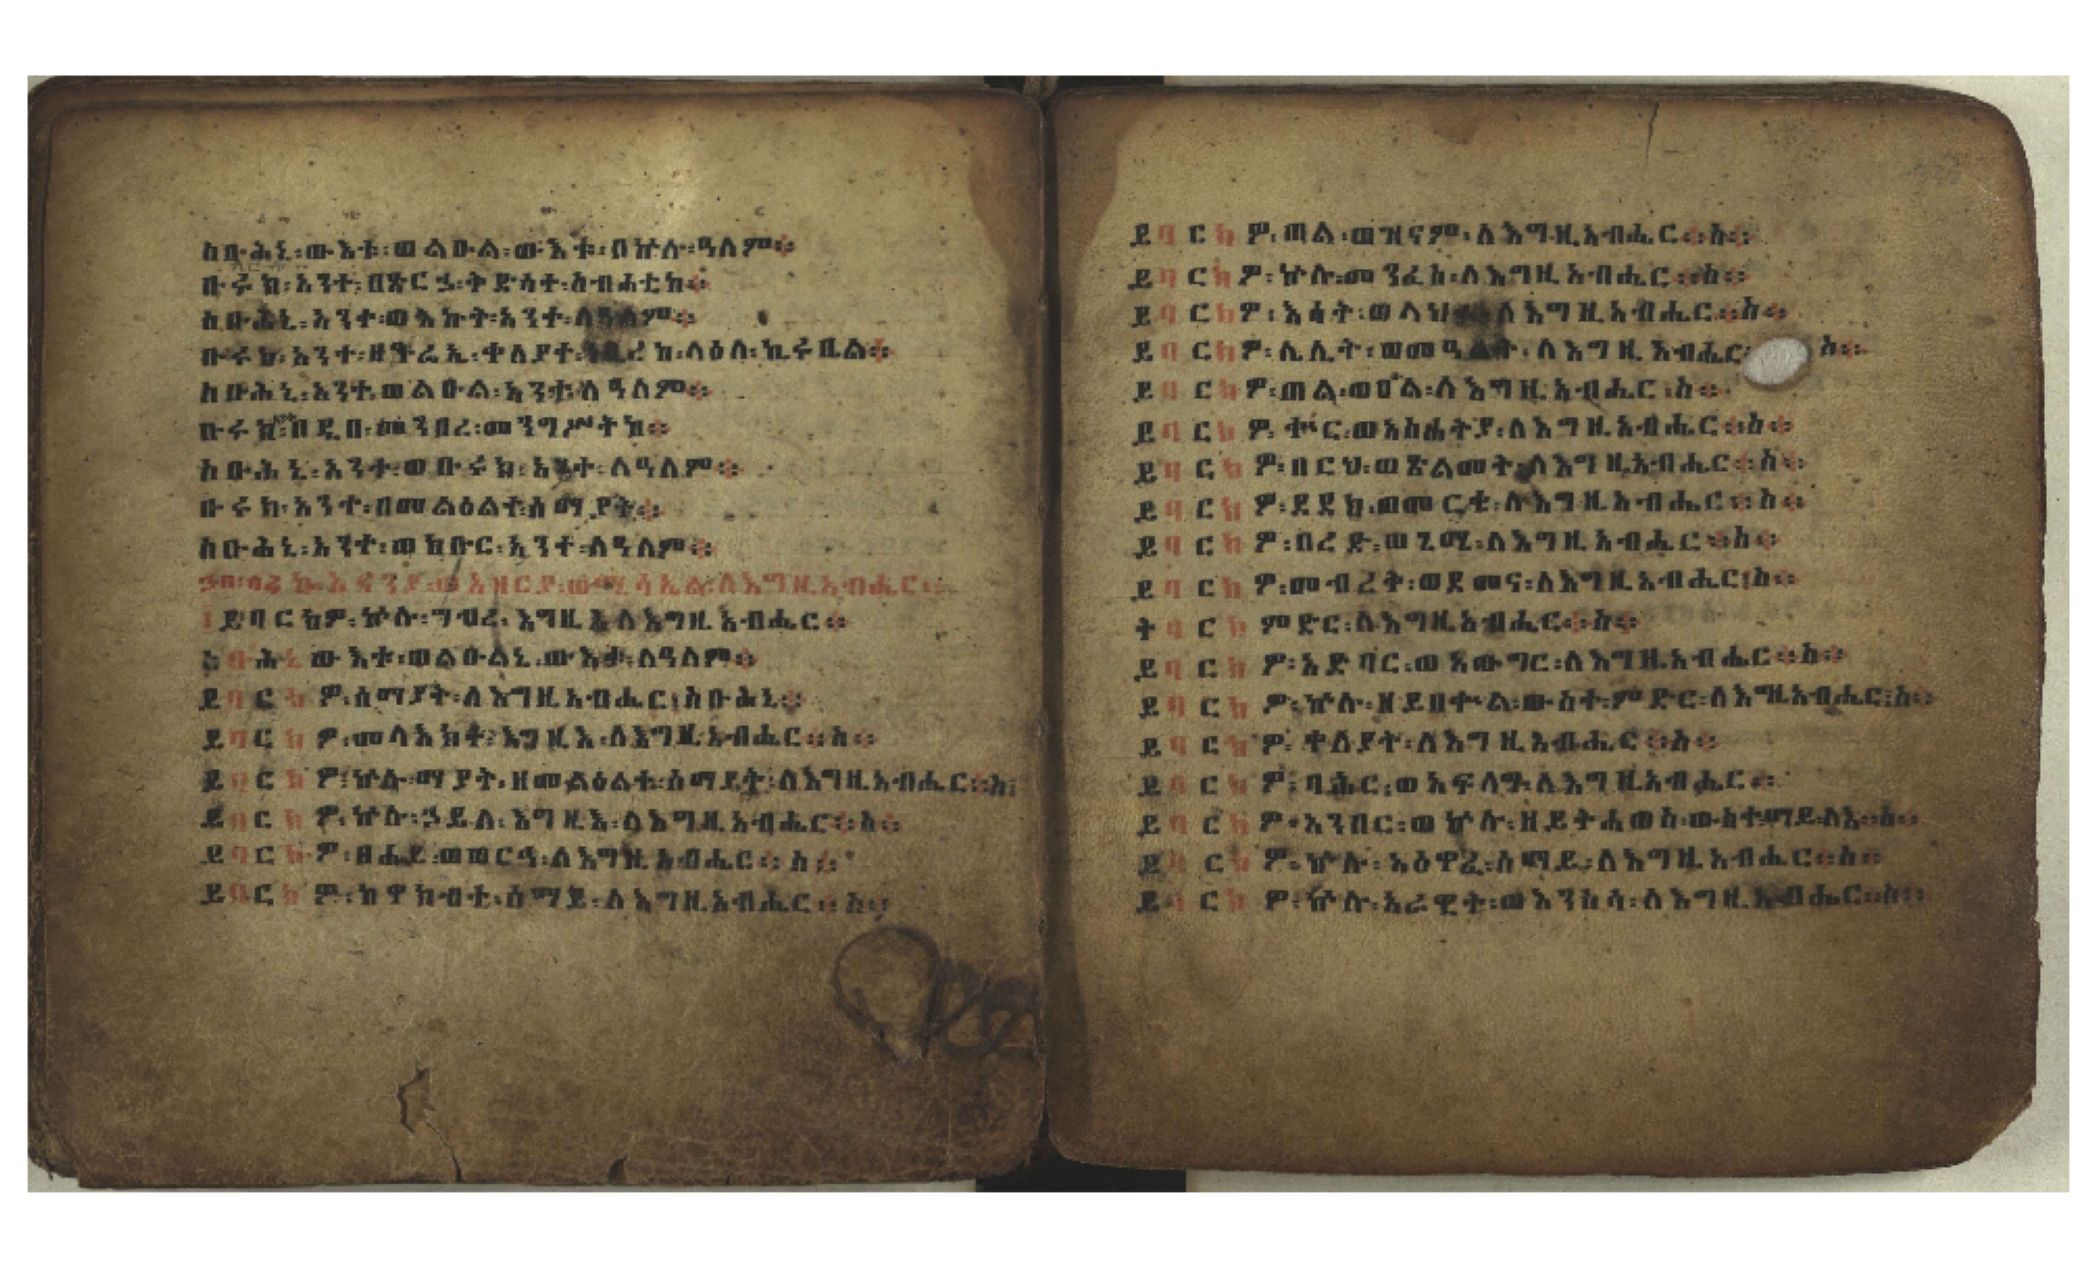 ስቡሕኒ፡ውእቱ፡ወልዑል፡ውእቱ፡በኵሉ፡ዓለም።
ቡሩክ፡አንተ፡በጽርኃ፡ትድሳተ፡ስብሐቲከ።
ስቡሕኒ፡አንተ፡ወእኩት፡አንተ፡ለዓለም።
ቡሩክ፡አንተ፡ዘትሬኢ፡ቀለያተ፡ላዕለ፡ኪሩቤል።
ስቡሕኒ፡አንተ፡ወልዑል፡አንተ፡ለዓለም።
ቡሩክ፡በዲበ፡መንበረ፡መንግሥትከ።
ስቡሕኒ፡አንተ፡ወቡሩክ፡አንተ፡ለዓለም።
ቡሩክ፡አንተ፡በመልዕልተ፡ሰማያት።
ስቡሕኒ፡አንተ፡ወክቡር፡አንተ፡ለዓለም።
አናንያ፡ወአዛርያ፡ወሚሳኤል፡ለእግዚአብሔር።
ይባርክዎ፡ኵሉ፡ግብረ፡እግዚእ፡ለእግዚአብሔር።
ስቡሕኒ፡ውእቱ፡ወልዑልኒ፡ውእቱ፡ለዓለም።
ይባርክዎ፡ሰማያት፡ለእግዚአብሔር፡ስቡሕኒ።
ይባርክዎ፡መላእክተ፡እግዚእ፡ለእግዚአብሔር።ስ።
ይባርክዎ፡ኵሉ፡ማያት፡ዘመልዕልተ፡ሰማያት፡ለእግዚአብሔር።ስ፡
ይባርክዎ፡ኵሉ፡ኃይለ፡እግዚእ፡ለእግዚአብሔር።ስ።
ይባርክዎ፡ፀሐይ፡ወወርኅ፡ለእግዚአብሔር።ስ።
ይባርክዎ፡ከዋክብተ፡ሰማይ፡ለእግዚአብሔር።ስ።
ይባርክዎ፡ጠል፡ወዝናም፡ለእግዚአብሔር።ስ።
ይባርክዎ፡ኵሉ፡መንፈስ፡ለእግዚአብሔር።ስ።
ይባርክዎ፡እሳት፡ወላህብ፡ለእግዚአብሔር።ስ።
ይባርክዎ፡ሌሊት፡ወመዓልት፡ለእግዚአብሔር፡ስ።
ይባርክዎ፡ጠል፡ወ፡ለእግዚአብሔር፡ስ።
ይባርክዎ፡ቍር፡ወአስሐትያ፡ለእግዚአብሔር።ስ።
ይባርክዎ፡በርህ፡ወጽልመት፡ለእግዚአብሔር።ስ።
ይባርክዎ፡ደደክ፡ወመርቄ፡ለእግዚአብሔር።ስ።
ይባርክዎ፡በረድ፡ወጊሜ፡ለእግዚአብሔር።ስ።
ይባርክዎ፡መብረቅ፡ወደመና፡ለእግዚአብሔር፡ስ።
ትባርክ፡ምድር፡ለእግዚአብሔር።ስ።
ይባርክዎ፡አድባር፡ወአውግር፡ለእግዚአብሔር።ስ።
ይባርክዎ፡ኵሉ፡ዘይበቍል፡ውስተ፡ምድር፡ለእግዚአብሔር፡ስ።
ይባርክዎ፡ቀለያት፡ለእግዚአብሔር።ስ።
ይባርክዎ፡ባሕር፡ወአፍላግ፡ለእግዚአብሔር።
ይባርክዎ፡አንበር፡ወኵሉ፡ዘይትሐወስ፡ውስተ፡ማይ፡ለእ።ስ።
ይባርክዎ፡ኵሉ፡አዕዋፈ፡ሰማይ፡ለእግዚአብሔር።ስ።
ይባርክዎ፡ኵሉ፡አራዊት፡ወእንስሳ፡ለእግዚአብሔር።ስ።